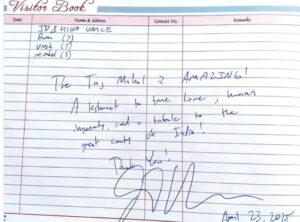 Visitor Book
Date Name & Address Contact No. Remarks
JD & USHA VANCE
Ewan (7)
Vivek (5)
Mirabel (3)
The Taj Mahal is AMAZING!
A testament to true love, human
ingenuity, and a tribute to the
great country of India!
Thank You!
April 23, 2025